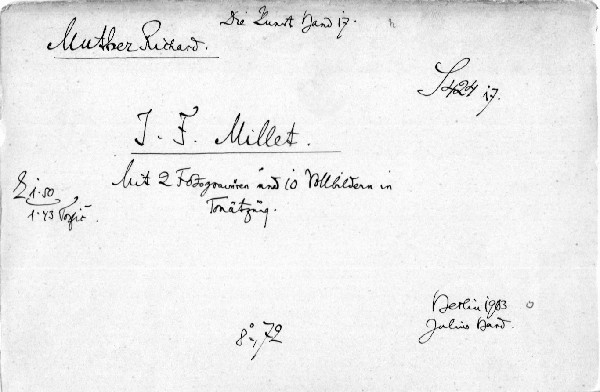 Die Kunst Band 17.
Muther Richard.
S 424 17.
J. F. Millet.
Mit 2 und 10 Vollbildern in
Tonätzung.
1.50
1.43
Berlin 1903
Julius Bard.
8°, 72